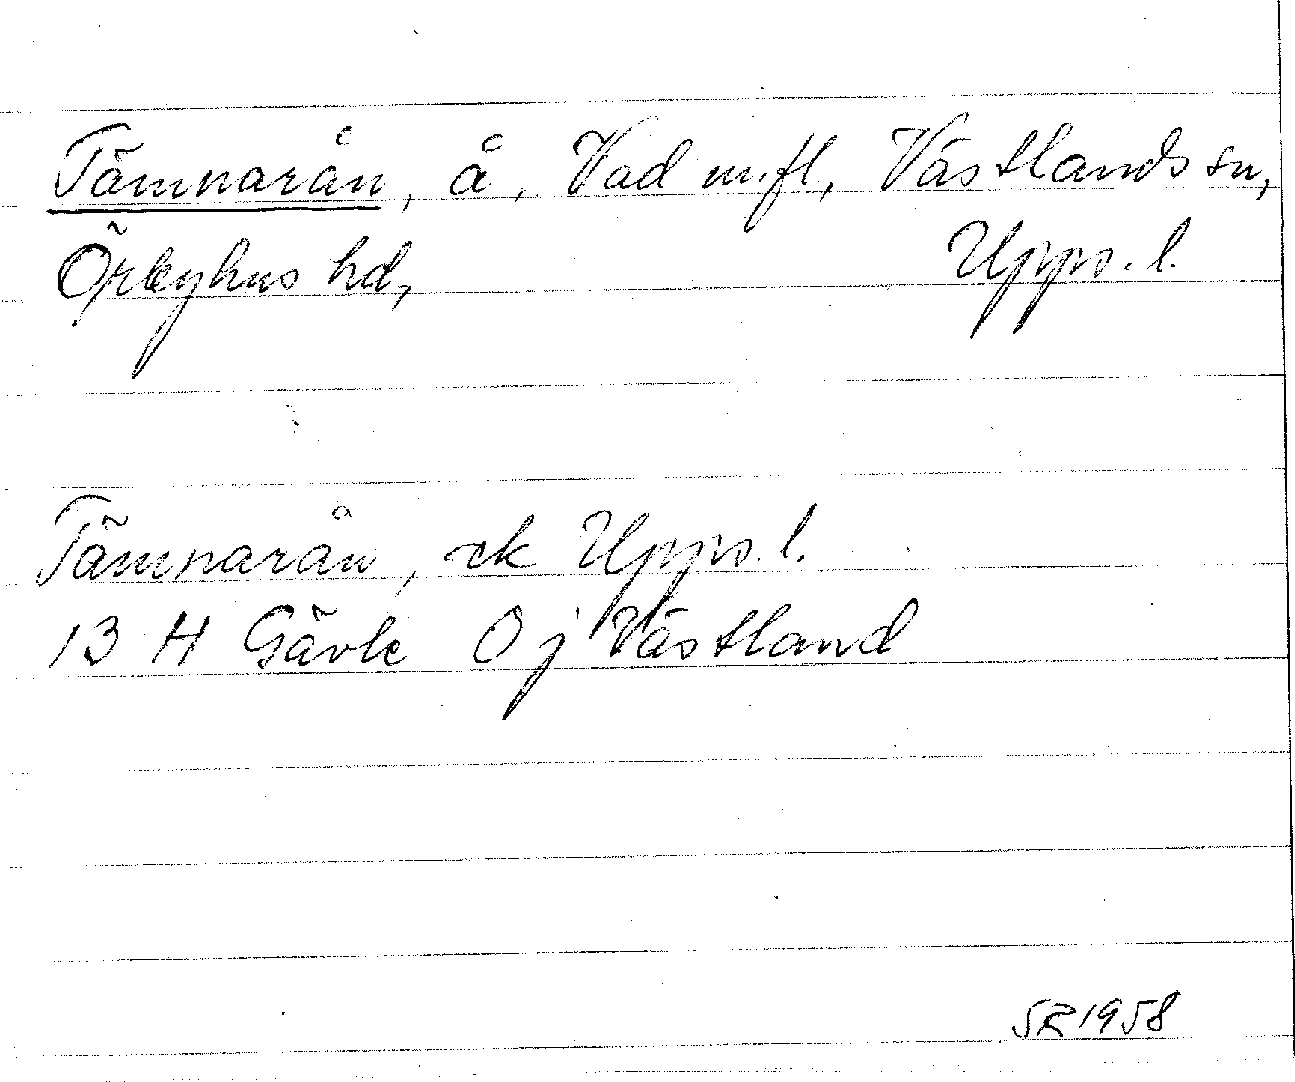 Tämnarån, å, Vad m.fl, Västlands sn,
Örbyhus hd, Upps. l.
Tämnarån, ek Upps. l.
13 H Gävle 0 j Västland
SR 1958